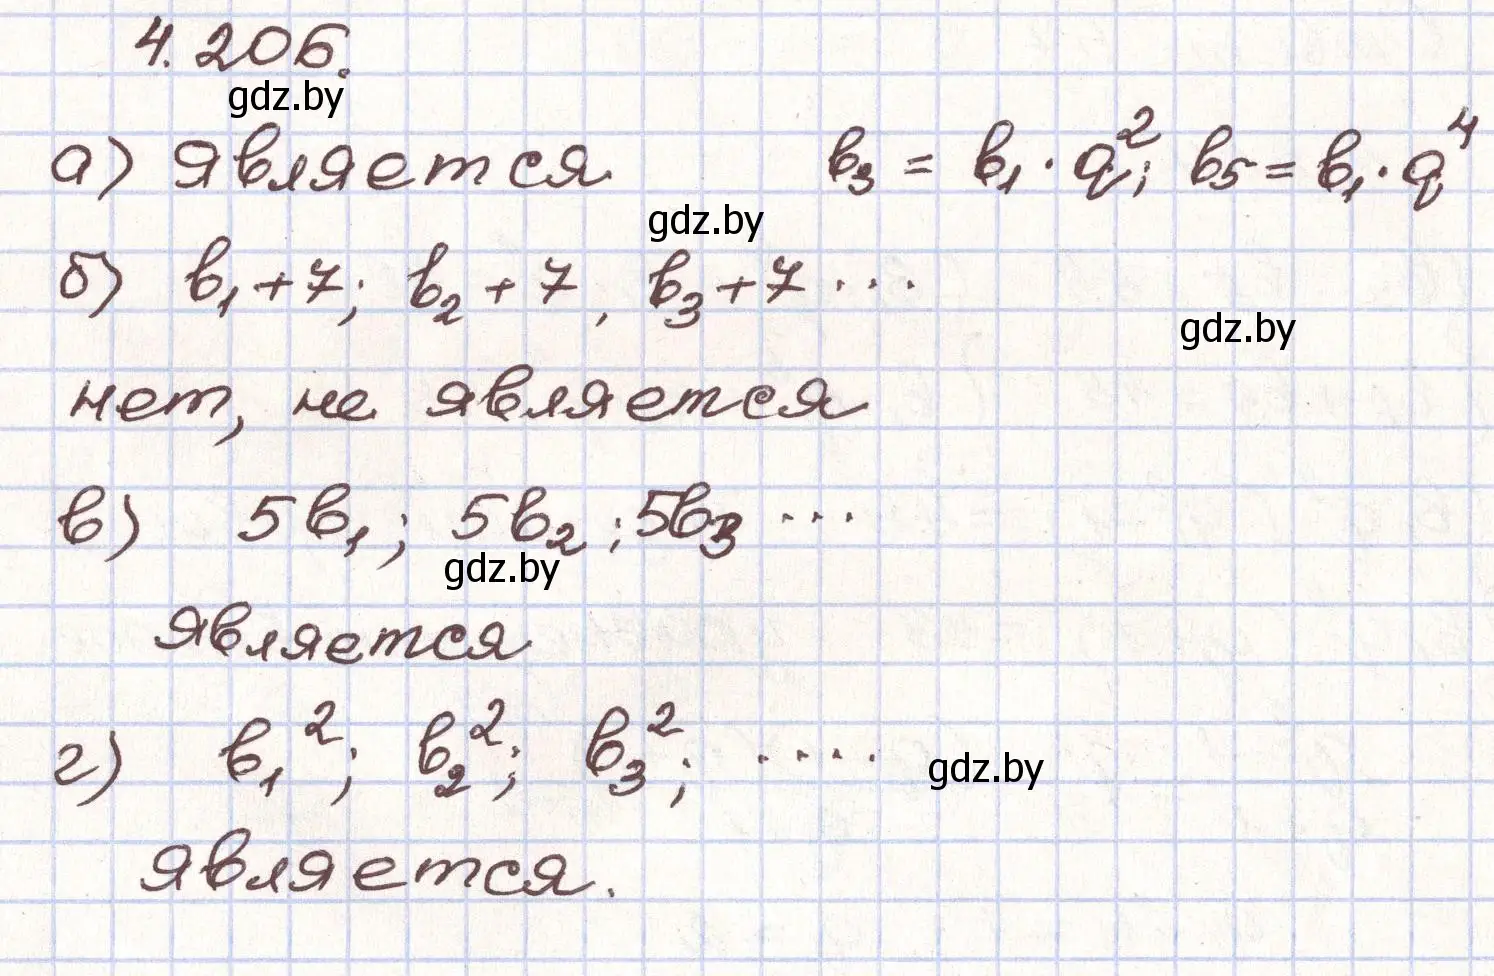 4.206.
gdz.by
а) является b₃ = b₁ · q²; b₅ = b₁ · q⁴
gdz.by
б) b₁ + 7; b₂ + 7, b₃ + 7 ...
gdz.by
нет, не является
в) 5b₁; 5b₂; 5b₃ ...
gdz.by
является
г) b₁²; b₂²; b₃²; ....
gdz.by
является.